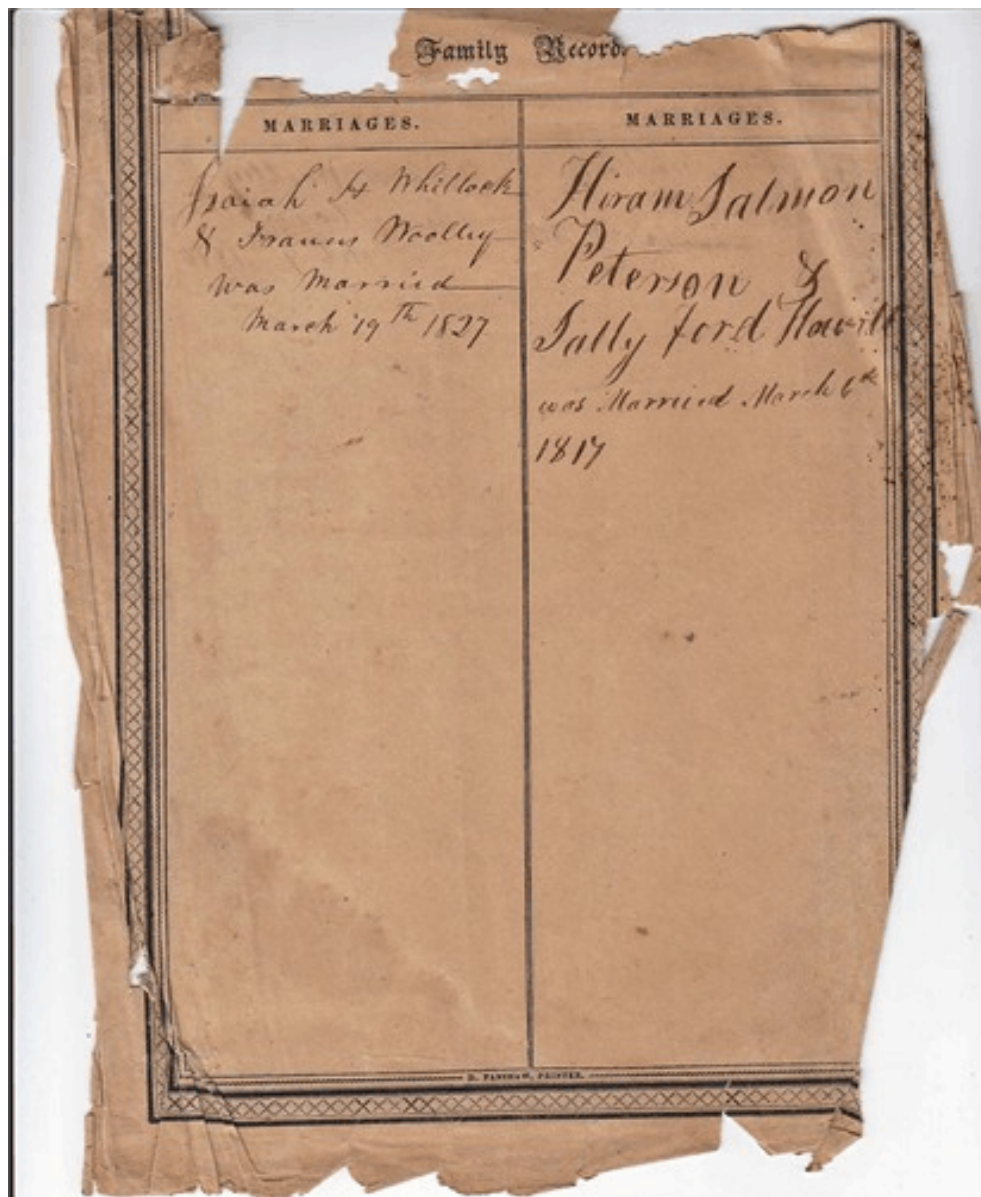 Family Record.
MARRIAGES.
Isaiah H Whitlock
& Frances Woolley
was Married
March 19th 1827
MARRIAGES.
Hiram Salmon
Peterson &
Sally Ford
was Married March 6th
1817
D. FANSHAW, PRINTER.